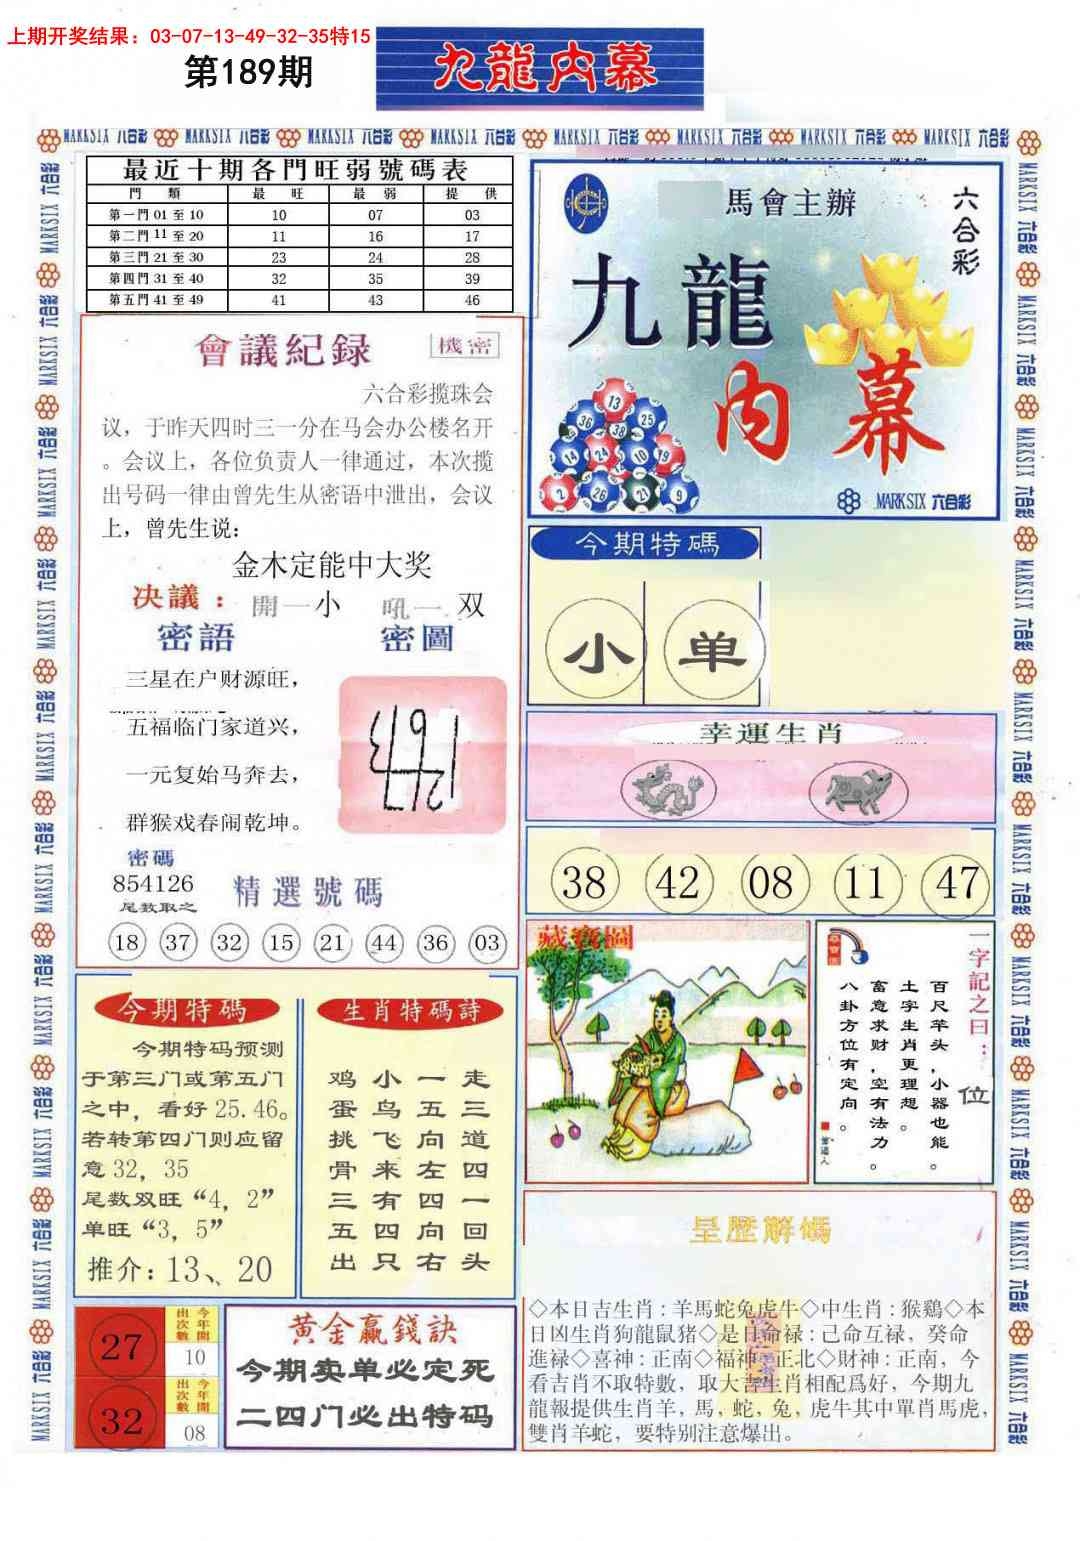 上期开奖结果：03-07-13-49-32-35特15
第189期
九龍内幕
MARKSIX 六合彩
最近十期各門旺弱號碼表
門 類 最 旺 最 弱 提 供
第一門 01 至 10 10 07 03
第二門 11 至 20 11 16 17
第三門 21 至 30 23 24 28
第四門 31 至 40 32 35 39
第五門 41 至 49 41 43 46
馬會主辦
六合彩
九龍
内幕
13
36
25
38
14
24
10
19
2
26
21
9
MARKSIX 六合彩
會議紀録
機密
六合彩揽珠会
议，于昨天四时三一分在马会办公楼名开
。会议上，各位负责人一律通过，本次揽
出号码一律由曾先生从密语中泄出，会议
上，曾先生说：
金木定能中大奖
决議： 開一小 吼一双
密語 密圖
三星在户财源旺，
五福临门家道兴，
一元复始马奔去，
群猴戏春闹乾坤。
密碼
854126
尾数取之
精選號碼
18 37 32 15 21 44 36 03
今期特碼
小 单
幸運生肖
38 42 08 11 47
今期特码
今期特码预测
于第三门或第五门
之中，看好25.46。
若转第四门则应留
意32，35
尾数双旺“4，2”
单旺“3，5”
推介：13、20
生肖特碼詩
鸡小一走
蛋鸟五三
挑飞向道
骨来左四
三有四一
五四向回
出只右头
藏寶圖
一字記之曰：
位
百尺竿头，小器也能。
土字生肖更理想。
富意求财，空有法力。
八卦方位有定向。
27
今年開出次數
10
32
今年開出次數
08
黄金赢錢訣
今期卖单必定死
二四门必出特码
呈歴解碼
◇本日吉生肖：羊馬蛇兔虎牛◇中生肖：猴鷄◇本
日凶生肖狗龍鼠猪◇是日命禄：己命互禄，癸命
進禄◇喜神：正南◇福神：正北◇財神：正南，今
看吉肖不取特數，取大吉生肖相配爲好，今期九
龍報提供生肖羊，馬，蛇，兔，虎牛其中單肖馬虎，
雙肖羊蛇，要特别注意爆出。